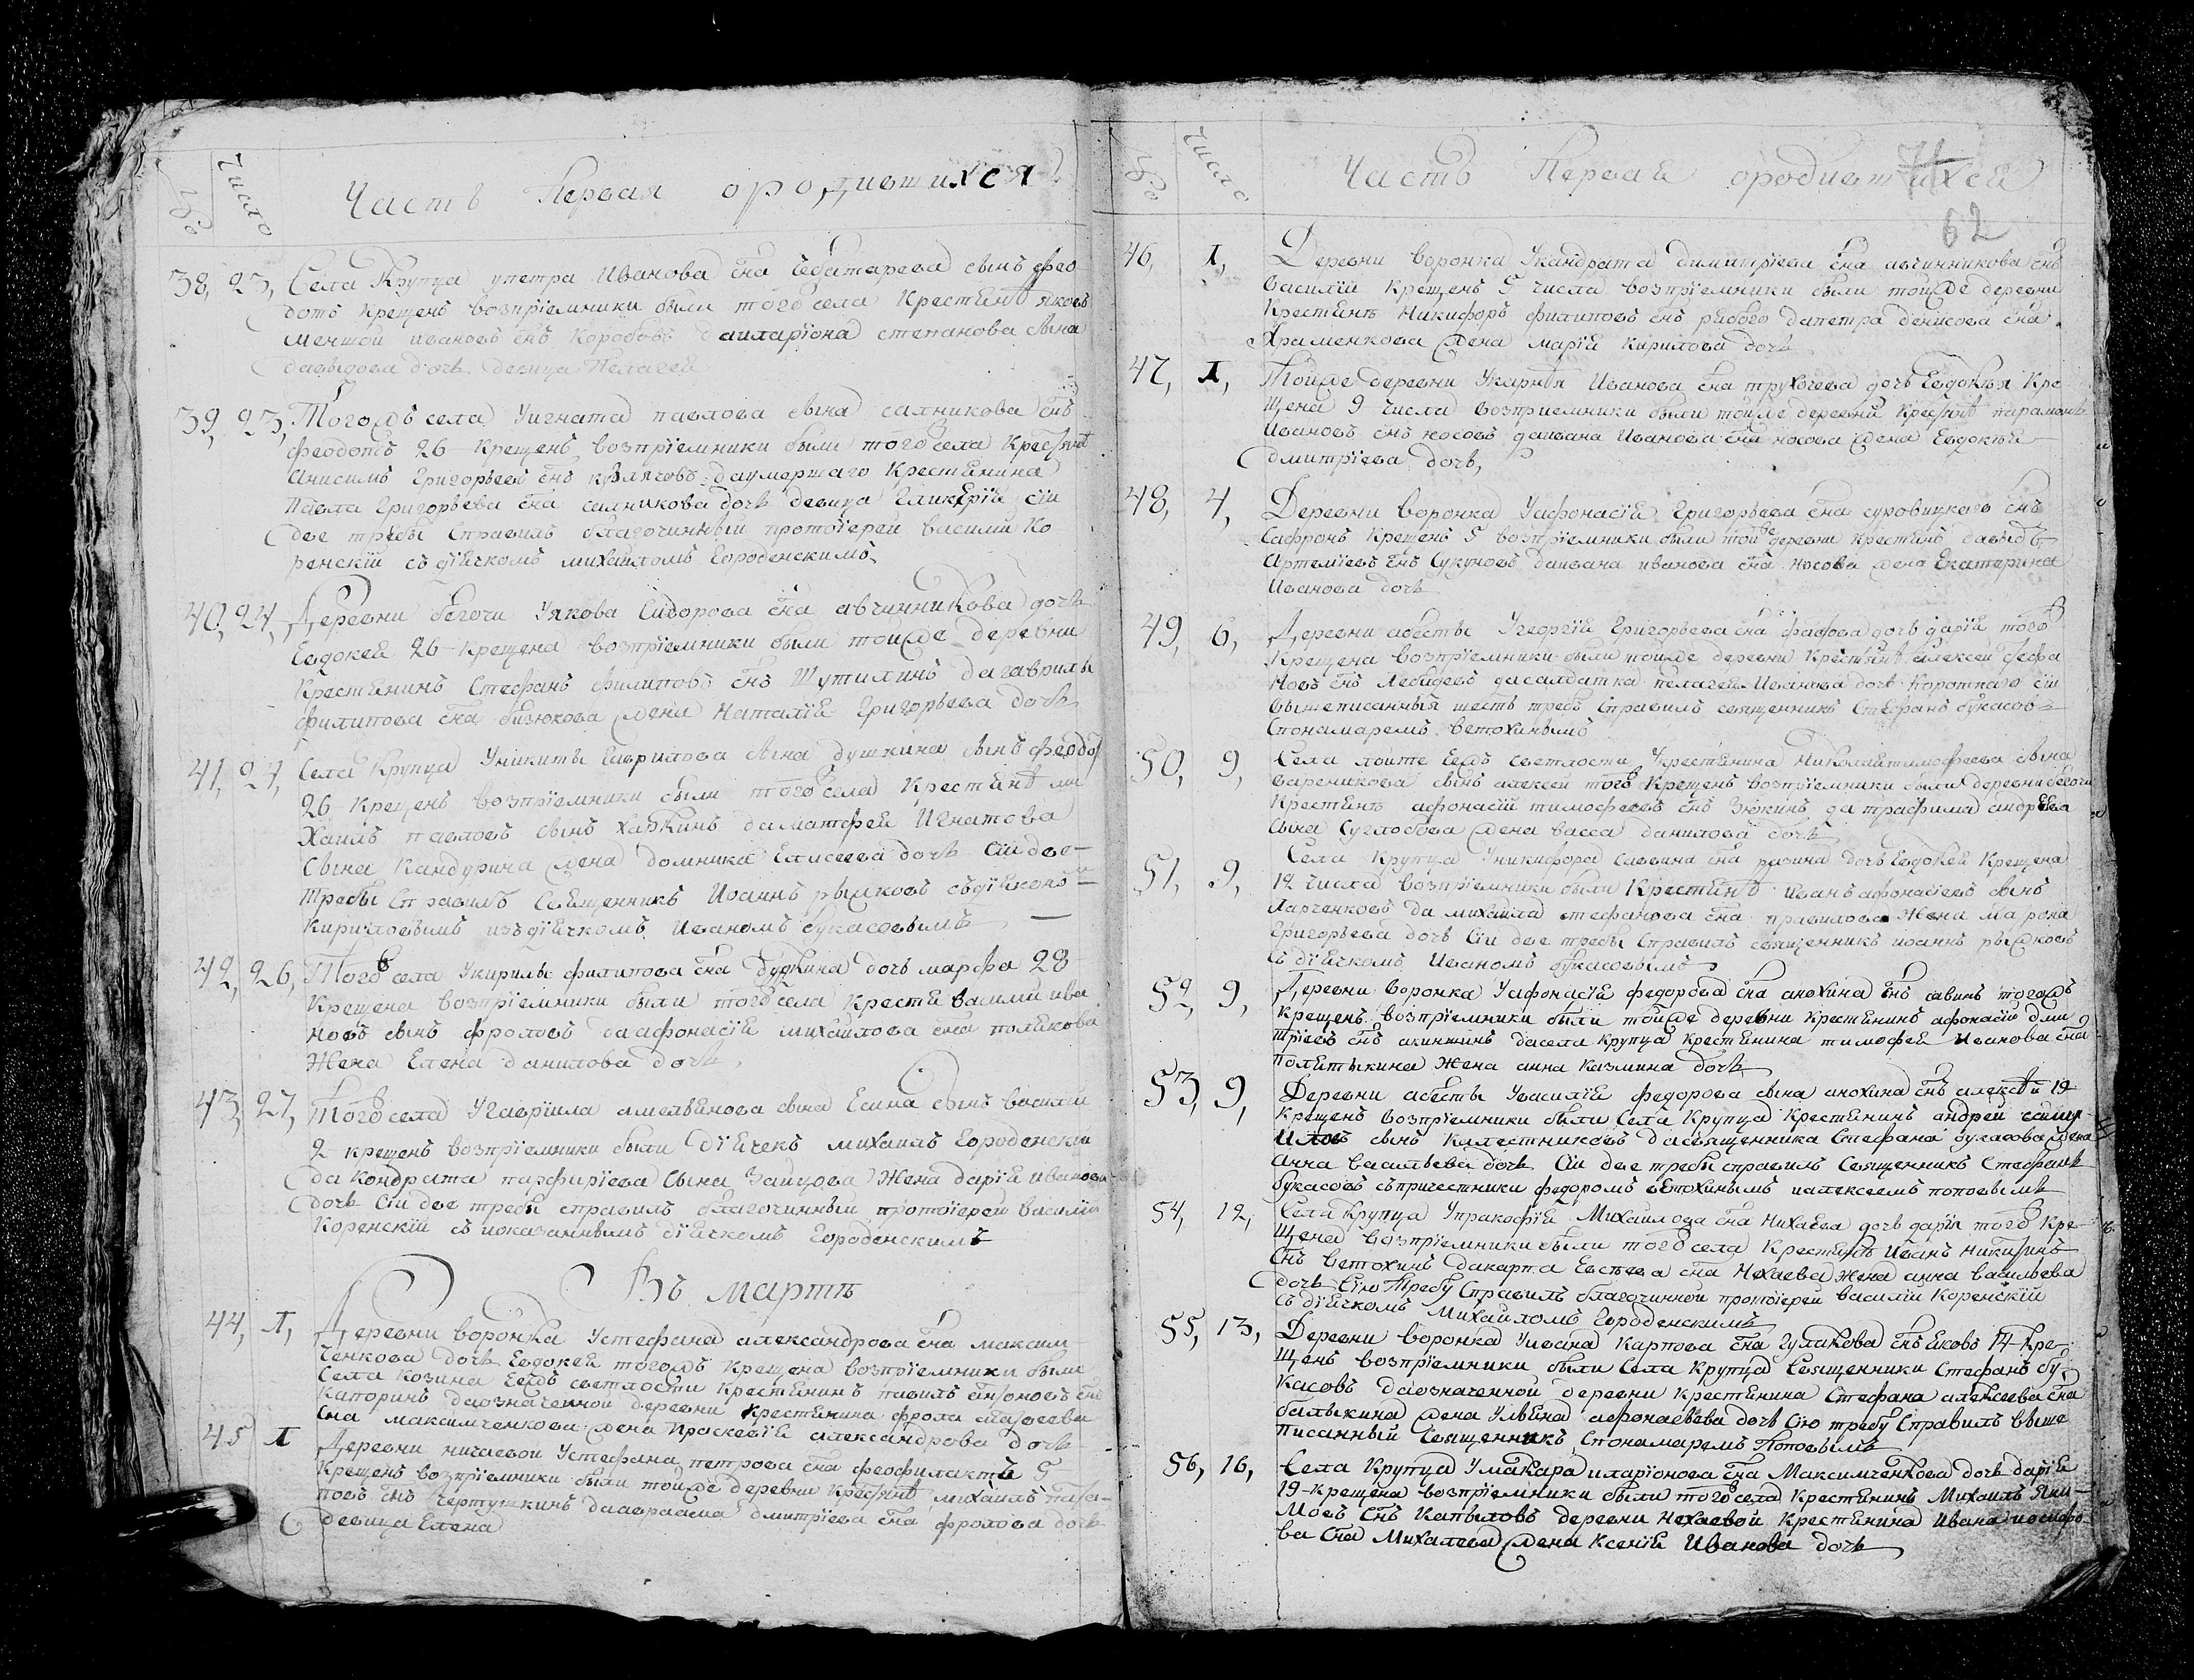 число
Часть Первая ородившихся
38, 23, Села Крупца упетра Иванова сна Чеботарева сынъ фео
дотъ крещенъ возпрїемники были того села Крестьянѣ яковъ
меншой ивановъ снъ Коробовъ даиларїона степанова сына
давыдова дочь девица Пелагея
39, 23, Тогожъ села Уигната павлова сына салникова снъ
феодотъ 26 крещенъ возпрїемники были того села
Анисимъ Григорьевъ снъ даумершаго Крестьянина
Павла Григорьева сна салникова дочь девица Гликерїя сїи
две требы Справилъ благочинный протоїерей василий Ко
ренскїй съ дїячкомъ михаиломъ Городенскимъ
40, 24, Деревни бегочи Уякова Сидорова сна авчинникова дочь
Евдокея 26 крещена возпрїемники были тойже деревни
Крестьянинъ Стефанъ филиповъ снъ Шутилинъ дагаврилы
филипова сна бизюкова жена Наталїя Григорьева дочь
41, 24, Села Крупца Уникиты Гаврилова сына душкина сынъ феодо
26 крещенъ возпрїемники были того села Крестьянѣ ми
хаилъ павловъ сынъ дамат­фея Игнатова
Сына Кандурина жена домника Елисеева дочь Сїи две
требы Справилъ Священникъ Иоаннъ рыжковъ съдїякономъ
Кириловымъ изъдїячкомъ Иваномъ букасовымъ
42, 26, Того села Укирилы филипова сна дочь марфа 28
Крещена возпрїемники были того села Крестя василий ива
новъ сынъ фроловъ даафонасїя михаилова сна полякова
Жена Елена данилова дочь
43, 27, Того села Угаврїила амельянова сына Есина сынъ василїй
2 крещенъ возпрїемники были дїячекъ михаилъ Городенскїй
да Кондрата парфирїева Сына Зайцова Жена дарїя иванова
дочь Сїи две требы справилъ благочинный протоїерей Василїй
Коренскїй съ показаннымъ дїячкомъ Городенскимъ
Въ мартѣ
44, 1, Деревни воронка Устефана александрова сна максим
ченкова дочь Евдокея тогожъ крещена возпрїемники были
Села Козина Еяжъ светлости крестьянинъ
Капоринъ даозначенной деревни крестьянина фрола
сна максимченкова жена Праскевїя александрова дочь
45 1 Деревни ничаевой Устефана петрова сна феофилактъ 5
Крещенъ возпрїемники были тойже деревни михаилъ
повъ снъ Чертушкинъ даавраама дмитрїева сна фролова дочь
девица Елена
число
Часть Первая ородившихся
71
62
46, 1, Деревни воронка Укандрата димитрїева сна авчинникова снъ
василїй крещенъ 5 числа возпрїемники были тойже деревни
Крестьянъ Никифоръ филиповъ снъ дапетра денисова сна
Храменкова жена марїя Кирилова дочь
47, 1, Тойже деревни Укарпа Иванова сна трухачева дочь Евдокья Кре
щена 9 числа возприемники были тойже деревни парамонъ
Ивановъ снъ носовъ даивана Иванова сна носова жена Евдокья
дмитрїева дочь,
48, 4, Деревни воронка Уафонасїя Григорьева сна суровицкаго снъ
Сафронъ Крещенъ 5 возпрїемники были тойже деревни крестьянъ давидъ
Артемїевъ снъ Сукуновъ даивана иванова сна носова жена Екатерина
Иванова дочь
49, 6, Деревни Угеоргїя Григорьева сна дочь дарїя того
Крещена возпрїемники были тойже деревни Крестьянѣ алексей
новъ снъ Лебедевъ дасалдатка пелагея Иванова дочь Короткаго сїи
вышеписанныя шесть требъ Справилъ священникъ Стефанъ букасовъ
Спономаремъ ветохинымъ
50, 9, Села Еяжъ светлости Укрестьянина Николаятимофеева сына
Вареникова сынъ алексей того Крещенъ возпрїемники были деревни бегочи
Крестьянъ афонасїй тимофеевъ снъ Зюкинъ да трафима андреева
Сына Суглобова жена васса данилова дочь
51, 9, Села Крупца Уникифора савина сна разина дочь Евдокея Крещена
12 числа возпрїемники были Крестьянѣ иванъ афонасїевъ сынъ
Ларченковъ да михаила стефанова сна правилова Жена Матрона
Григорьева дочь Сїи две требы Справилъ священникъ иоаннъ рыжковъ
съ дїячкомъ Иваномъ букасовымъ
52, 9, Деревни воронка Уафонасїя федорова сна анохина снъ савинъ тогожъ
крещенъ возпрїемники были тойже деревни крестьянинъ афонасїй дми
трїевъ снъ акиншинъ дасела крупца крестьянина тимофея Иванова сна
полятыкина Жена анна казмина дочь
53, 9, Деревни Увасилїя федорова сына анохина снъ алексѣй 12
крещенъ возпрїемники были Села Крупца Крестьянинъ андрей самуи
иловъ сынъ Калестниковъ дасвященника Стефана букасова жена
Анна васильева дочь Сїи две требы справилъ Священникъ Стефанъ
букасовъ съпричестники федоромъ ветохинымъ иалексеемъ поповымъ
54, 12, Села Крупца Упракофїя Михаилова сна Нихаева дочь дарїя того Кре
щена возпрїемники были того села Крестьянъ Иванъ Никитинъ
снъ ветохинъ дакарпа Евсѣева сна Нехаева жена анна васильева
дочь Сїю требу Справилъ благочинной протоїерей василїй Коренскїй
съ дїячкомъ Михаиломъ Городенскимъ
55, 13, Деревни воронка Уивана Карпова сна Гулакова снъ яковъ 14 кре
щенъ возпрїемники были Села Крупца Священники Стефанъ бу
касовъ даозначенной деревни крестьянина Стефана алексеева сна
балыкина жена Ульяна афонасьева дочь Сїю требу Справилъ выше
писанный Священникъ Спономаремъ Поповымъ
56, 16, Села Крупца Умакара иларїонова сна Максимченкова дочь дарїя
19 крещена возпрїемники были того села крестьянинъ Михаилъ Яки
мовъ снъ Капыловъ деревни Нехаевой Крестьянина Ивана иосифо
ва сна Михалева жена Ксенїя Иванова дочь